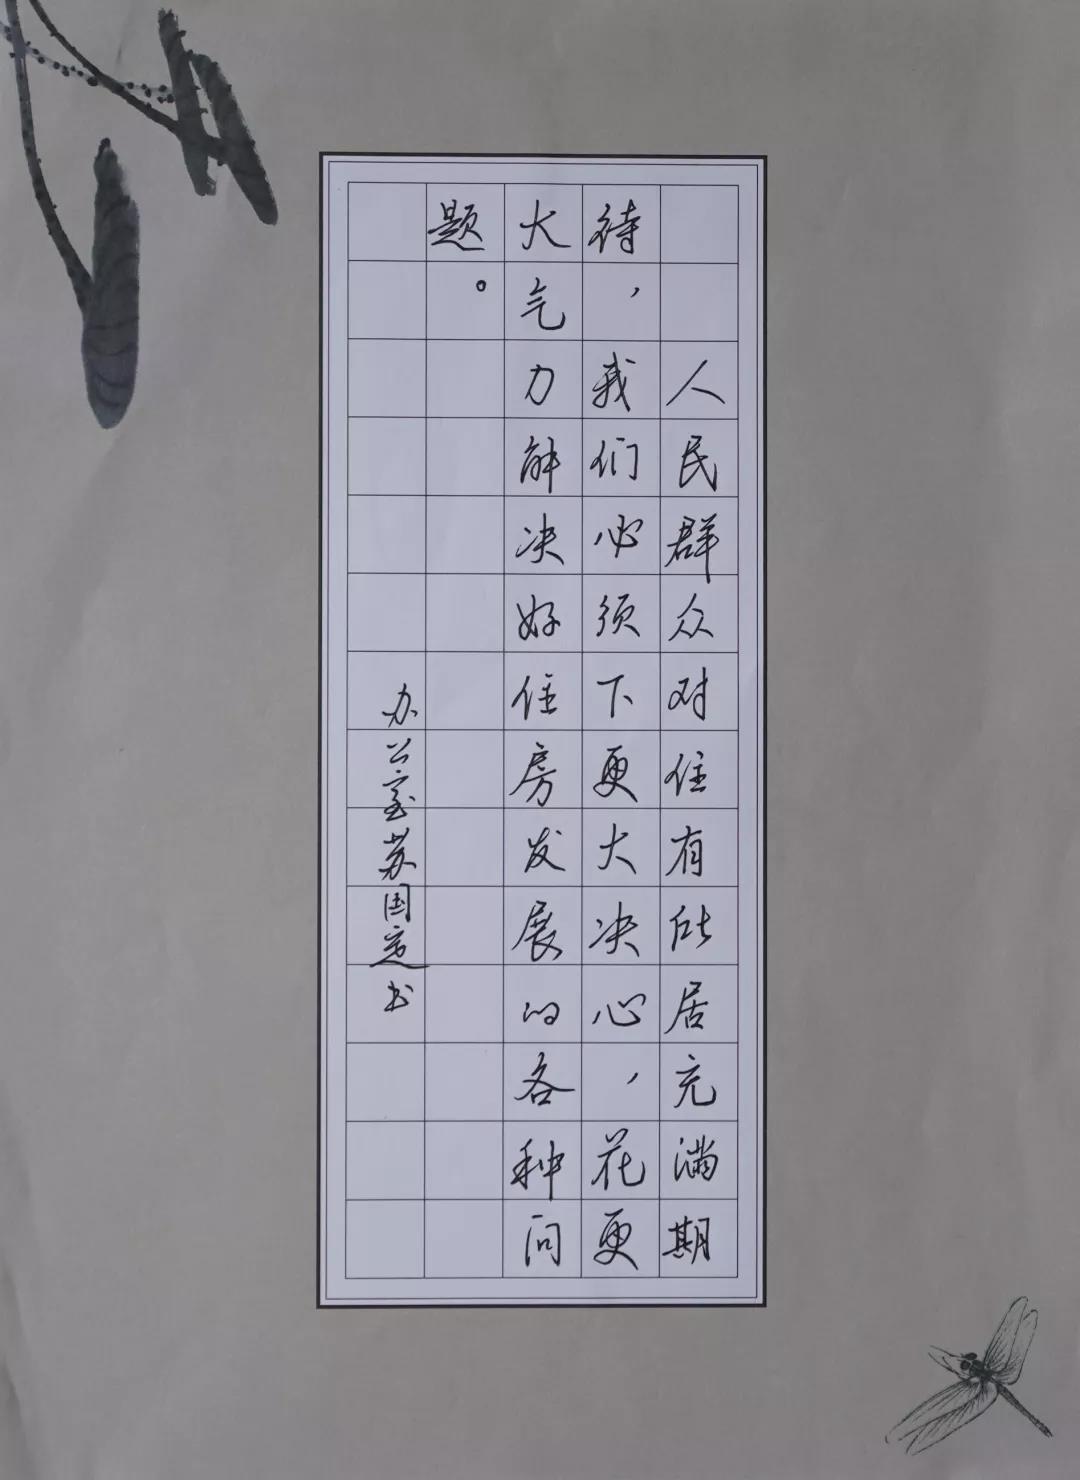 人民群众对住有所居充满期
待，我们必须下更大决心，花更
大气力解决好住房发展的各种问
题。
办公室苏国定书